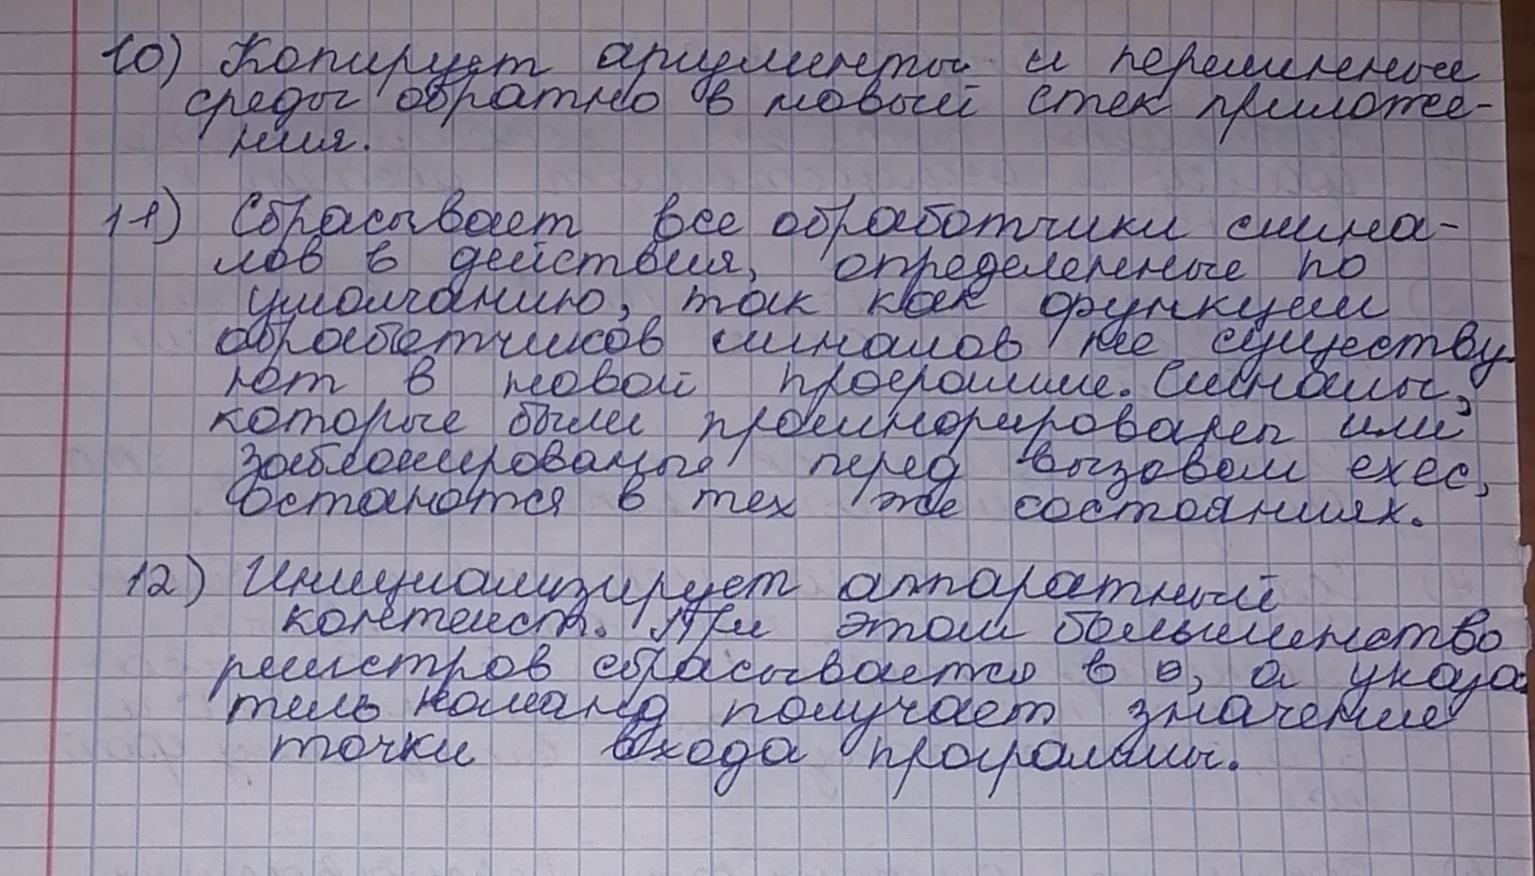 10) Копирует аргументы и переменные
среды обратно в новый стек приложе-
ния.
11) Сбрасывает все обработчики сигна-
лов в действия, определенные по
умолчанию, так как функции
обработчиков сигналов не существу
ют в новой программе. Сигналы,
которые были проигнорированы или
заблокированые перед вызовом exec,
останотся в тех же состояниях.
12) Инициализирует аппаратный
контекст. При этом большинство
регистров сбрасывается в 0, а указа
тель команд получает значение
точки входа программы.